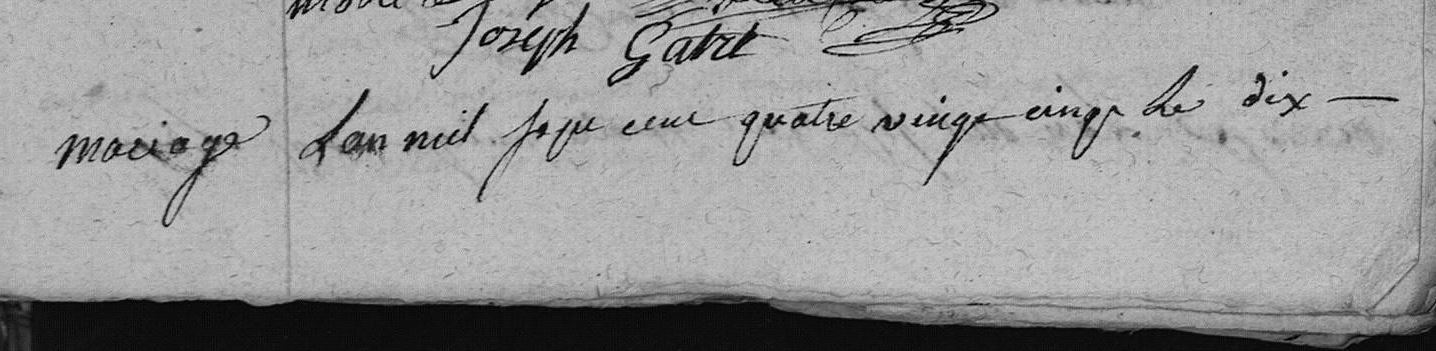 Joseph Gabrt
mariage Lan mil sept cent quatre vingt cinq le dix